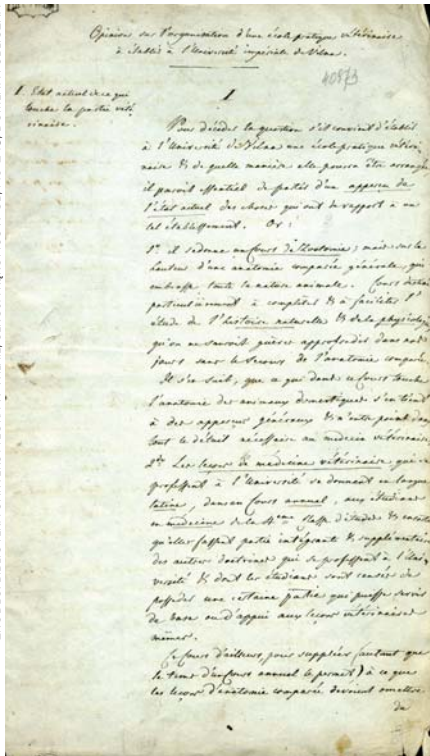 Opinion sur l'organisation d'une école pratique vétérinaire
à établir à l'Université impériale de Vilna.
40873
1. Etat actuel de ce qui
touche la partie vété
rinaire.
1
Pour décider la question s'il convient d'établir
à l'Université de Vilna une école pratique vétéri-
naire & de quelle manière elle pourra être arrangée
il paroit essentiel de partir d'un apperçu de
l'état actuel des choses qui ont du rapport à un
tel établissement. Or:
1º il se donne un Cours de Zootomie; mais sur la
hauteur d'une anatomie comparée générale, qui
embrasse toute la nature animale. Cours destiné
particulièrement à completer & à faciliter l'
étude de l'histoire naturelle & de la physiologie
qu'on ne sauroit guères approfondir dans nos
jours sans le secours de l'anatomie comparée.
Il s'en suit, que ce qui dans ce Cours touche
l'anatomie des animaux domestiques s'en tient
à des apperçus généraux & n'entre point dans
tout le détail nécessaire au médecin vétérinaire.
2do Les leçons de médecine vétérinaire qui se
professent à l'Université se donnent en langue
latine, dans un Cours annuel, aux étudians
en médecine de la 4ème Classe d'études &
qu'elles fassent partie intégrante & supplémentaire
des autres doctrines qui se professent à l'Uni-
versité & dont les étudians sont censés de
posséder une certaine partie qui puisse servir
de base ou d'appui aux leçons vétérinaires
mêmes.
Ce Cours d'ailleurs, pour suppléer (autant que
le tems d'un Cours annuel le permet) à ce que
les leçons d'anatomie comparée devroient omettre
du